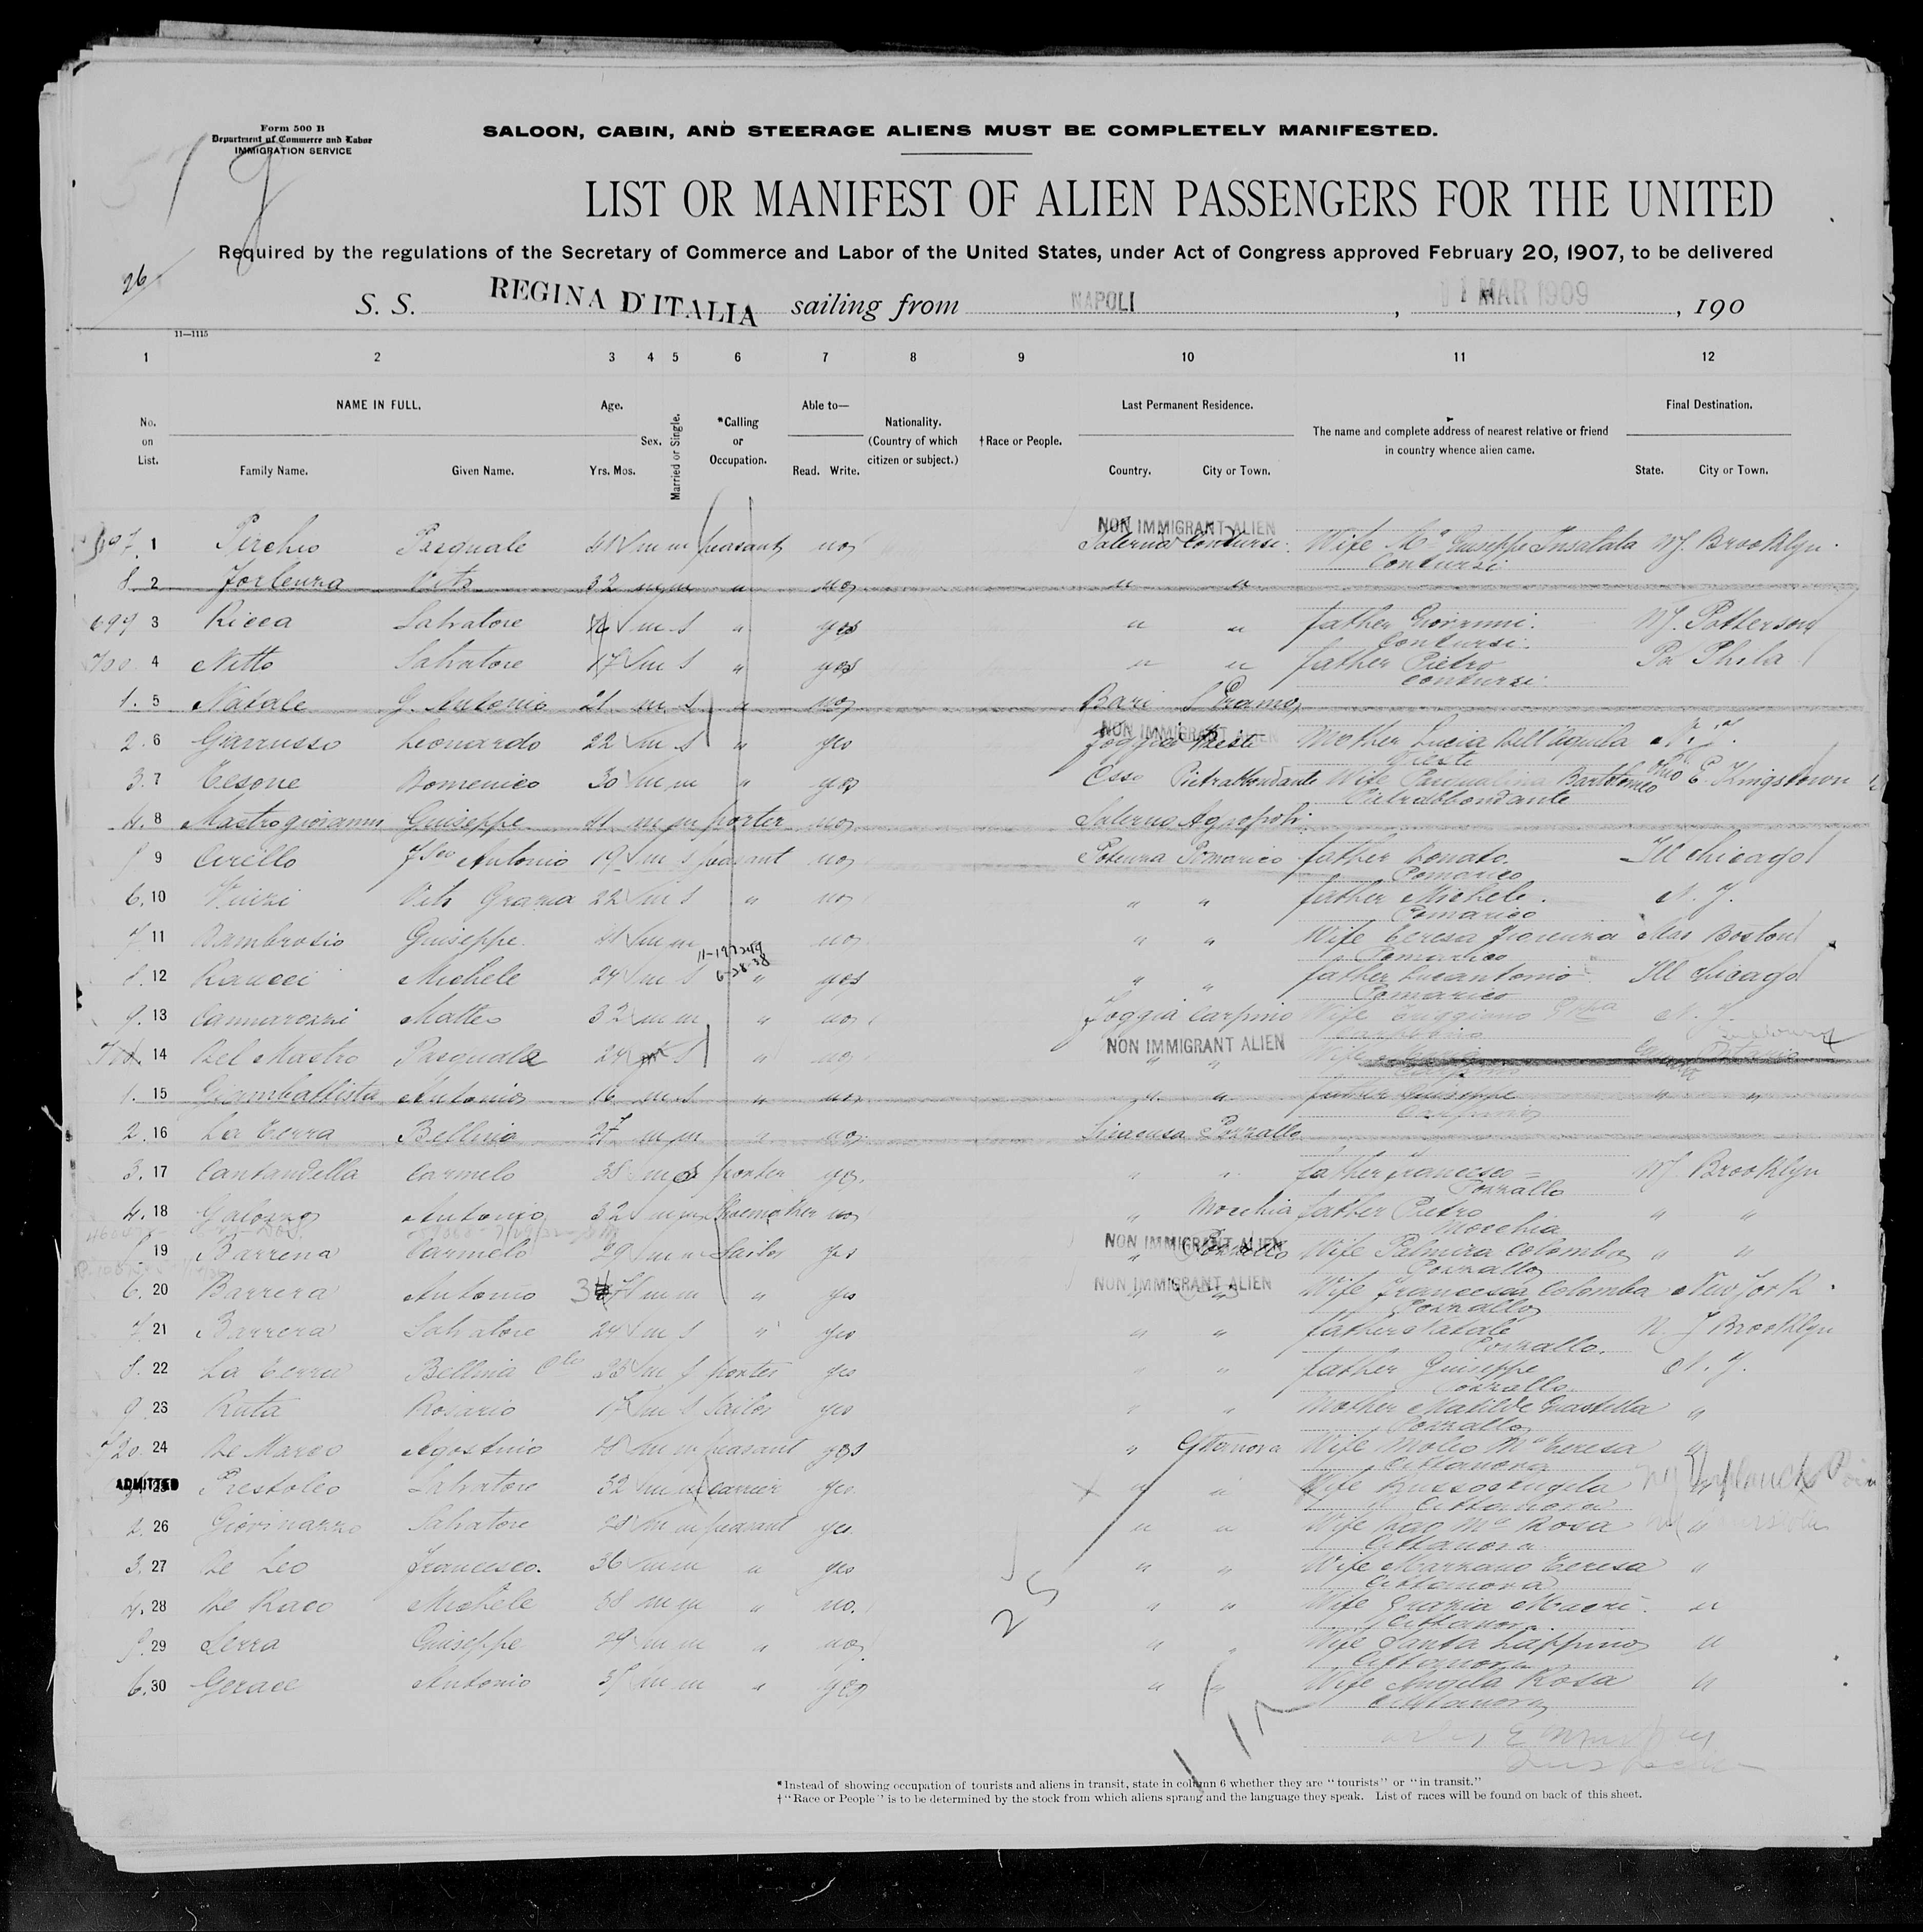 Form 500 B
Department of Commerce and Labor
IMMIGRATION SERVICE
SALOON, CABIN, AND STEERAGE ALIENS MUST BE COMPLETELY MANIFESTED.
LIST OR MANIFEST OF ALIEN PASSENGERS FOR THE UNITED
Required by the regulations of the Secretary of Commerce and Labor of the United States, under Act of Congress approved February 20, 1907, to be delivered
26
S. S. REGINA D'ITALIA sailing from NAPOLI , 11 MAR 1909 , 190
11—1115
1 2 3 4 5 6 7 8 9 10 11 12
No. on List. NAME IN FULL. Family Name. Given Name. Age. Yrs. Mos. Sex. Married or Single. *Calling or Occupation. Able to— Read. Write. Nationality. (Country of which citizen or subject.) †Race or People. Last Permanent Residence. Country. City or Town. The name and complete address of nearest relative or friend in country whence alien came. Final Destination. State. City or Town.
NON IMMIGRANT ALIEN
1 Pasquale 41 m m peasant no Salerno Contursi Wife Mª Giuseppe Insalata NY. Brooklyn
Contursi
8. 2 Vito 32 m m " no " "
699 3 Ricca Salvatore m s " yes " " father Giovanni NY. Patterson
Contursi
700 4 Nitto Salvatore 17 m s " yes " " father Pietro Pa Phila
Contursi
1. 5 Natale G. Antonio 21 m s " no Bari S Eramo
NON IMMIGRANT ALIEN
2. 6 Giarrusso Leonardo 22 m s " yes Foggia Vieste Mother Lucia Dell'Aquila N. Y.
Vieste
3. 7 Tesone Domenico 30 m m " yes Pietrabbondante Wife Bartolomeo Ohio E. Kingstown
Pietrabbondante
4. 8 Mastrogiovanni Giuseppe 41 m m porter no Salerno Agropoli
5 9 Cirello Antonio 19 m s peasant no Potenza Pomarico father Donato Ill Chicago
Pomarico
6. 10 Vito 22 m s " no " " father Michele N. Y.
Pomarico
7. 11 Dambrosio Giuseppe 41 m m no " " Wife Teresa Fiorenza Mas Boston
11-197249
Pomarico
6-28-38
8. 12 Raucci Michele 24 m s " yes " " father Lucantonio Ill Chicago
Pomarico
9. 13 Cannarozzi Matteo 32 m m " no Foggia Carpino Wife Triggiano N. Y.
Carpino
NON IMMIGRANT ALIEN
14 Del Mastro Pasquale 24 s " no " "
1. 15 Giambattista Antonio 16 m s " no " " father Giuseppe " "
2. 16 La Terra Bellino 27 m m " no Siracusa Pozzallo
3. 17 Cantandella Carmelo 38 m s porter " " father Francesco NY. Brooklyn
Pozzallo
4. 18 Antonio 32 m m shoemaker no " father Pietro " "
NON IMMIGRANT ALIEN
19 Barrera Carmelo 29 m m sailor yes " Pozzallo Wife Palmira Colombo " "
Pozzallo
NON IMMIGRANT ALIEN
6. 20 Barrera Antonio 34 m m " yes " " Wife Francesca Colombo New York
Pozzallo
7. 21 Barrera Salvatore 24 m s " yes " " father Natale N. Y Brooklyn
Pozzallo
8. 22 La Terra Bellina 23 m s porter yes " " father Giuseppe N. Y.
Pozzallo
9. 23 Ruta Rosario 17 m s sailor yes " " Mother Matilde "
Pozzallo
720. 24 De Marco Agostino 28 m m peasant yes " Cittanova Wife Moleo Mª Teresa "
Cittanova
ADMITTED 25 Prestoleo Salvatore 32 m m yes " " Wife Russo Angela NY
Cittanova
2. 26 Giovinazzo Salvatore 28 m m peasant yes " " Wife Rao Mª Rosa "
Cittanova
3. 27 De Leo Francesco. 36 m m " yes " " Wife Marzano Teresa "
Cittanova
4. 28 De Raco Michele 38 m m " no. " " Wife Grazia Macri "
Cittanova
25
5. 29 Serra Giuseppe 29 m m " no " " Wife Santa Lappino "
Cittanova
6. 30 Gerace Antonio m m " yes " " Wife Angela Rosa "
Cittanova
*Instead of showing occupation of tourists and aliens in transit, state in column 6 whether they are "tourists" or "in transit."
†"Race or People" is to be determined by the stock from which aliens sprang and the language they speak. List of races will be found on back of this sheet.